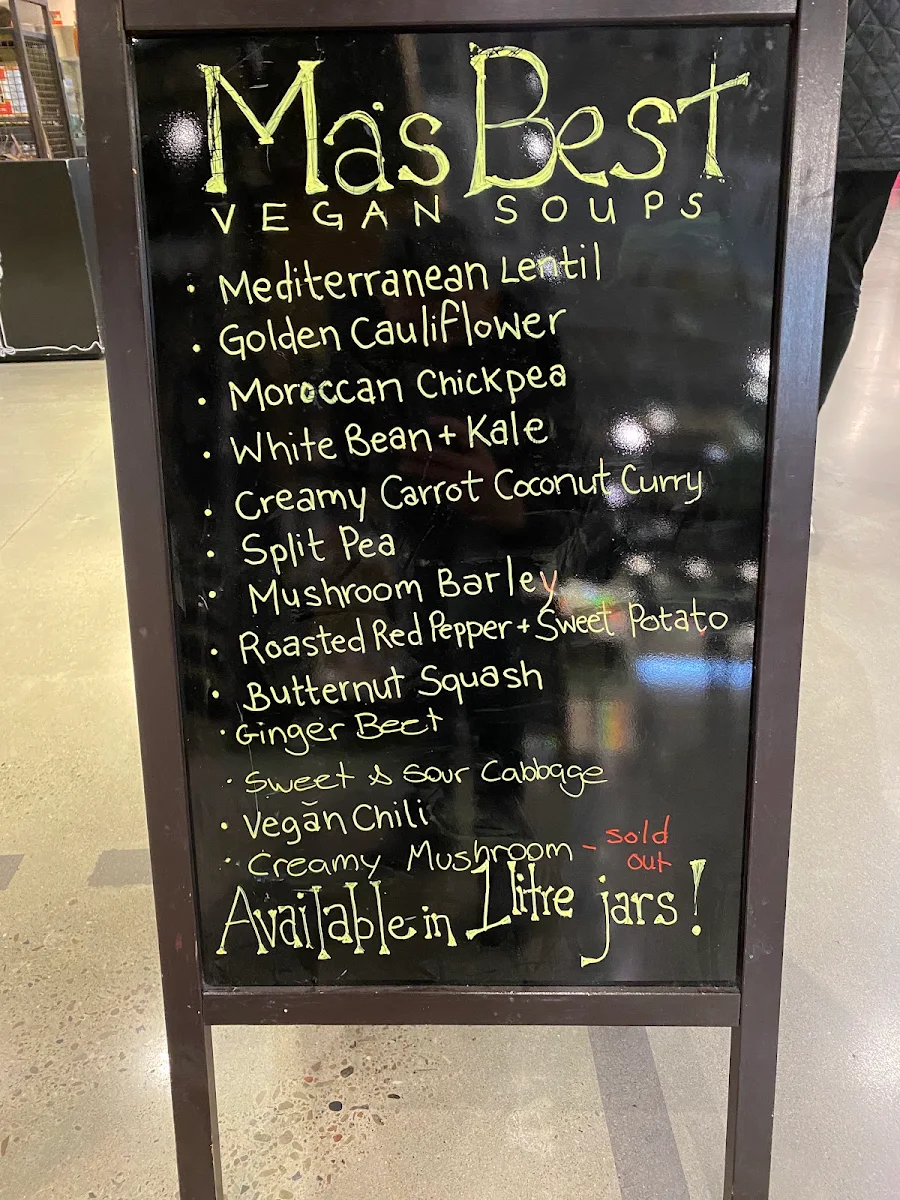 Ma's Best
VEGAN SOUPS
• Mediterranean Lentil
• Golden Cauliflower
• Moroccan Chickpea
• White Bean + Kale
• Creamy Carrot Coconut Curry
• Split Pea
• Mushroom Barley
• Roasted Red Pepper + Sweet Potato
• Butternut Squash
• Ginger Beet
• Sweet & Sour Cabbage
• Vegan Chili
• Creamy Mushroom - sold out
Available in 1 litre jars!